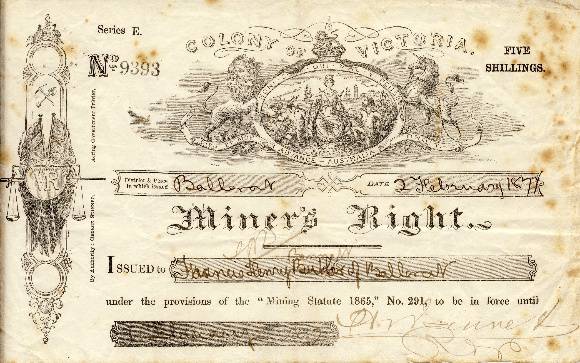 Series E.
COLONY OF VICTORIA.
FIVE SHILLINGS.
No. 9393
ADVANCE AUSTRALIA
By Authority: Gustant Acting Government Printer.
District & Place in which issued Ballarat DATE 2 February 187
Miner's Right.
ISSUED to Francis Henry of Ballarat
under the provisions of the "Mining Statute 1865," No. 291, to be in force until